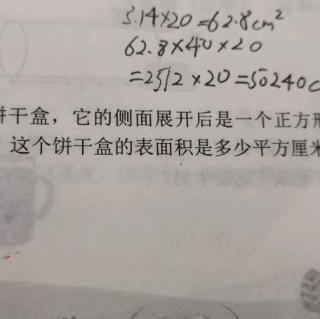 3.14×20=62.8cm²
62.8×40×20
=2512×20=50240c
饼干盒，它的侧面展开后是一个正方形
这个饼干盒的表面积是多少平方厘米